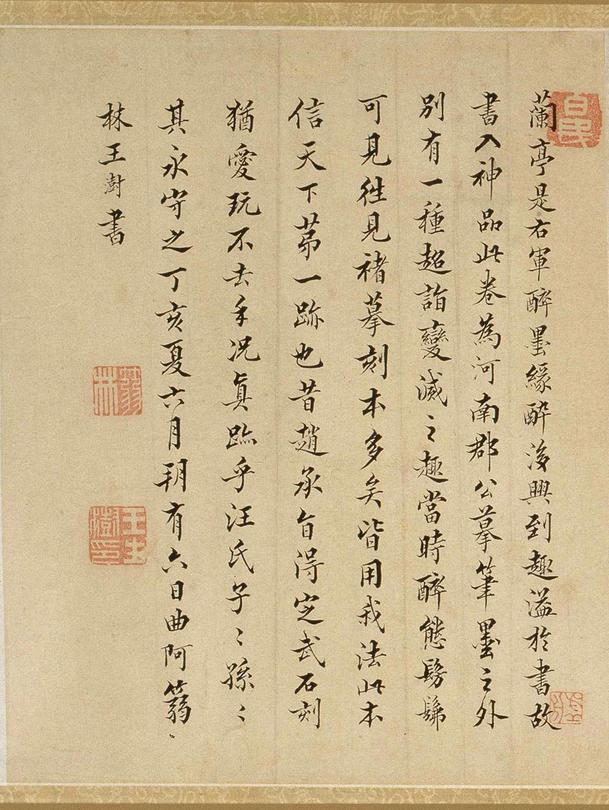 蘭亭是右軍醉墨緣醉後興到趣溢於書故
書入神品此卷為河南郡公摹筆墨之外
別有一種超詣變滅之趣當時醉態髣髴
可見往見褚摹刻本多矣皆用我法此本
信天下苐一跡也昔趙承旨得定武石刻
猶愛玩不去手况真跡乎汪氏子〻孫〻
其永守之丁亥夏六月朔有六日曲阿蒻
林王澍書